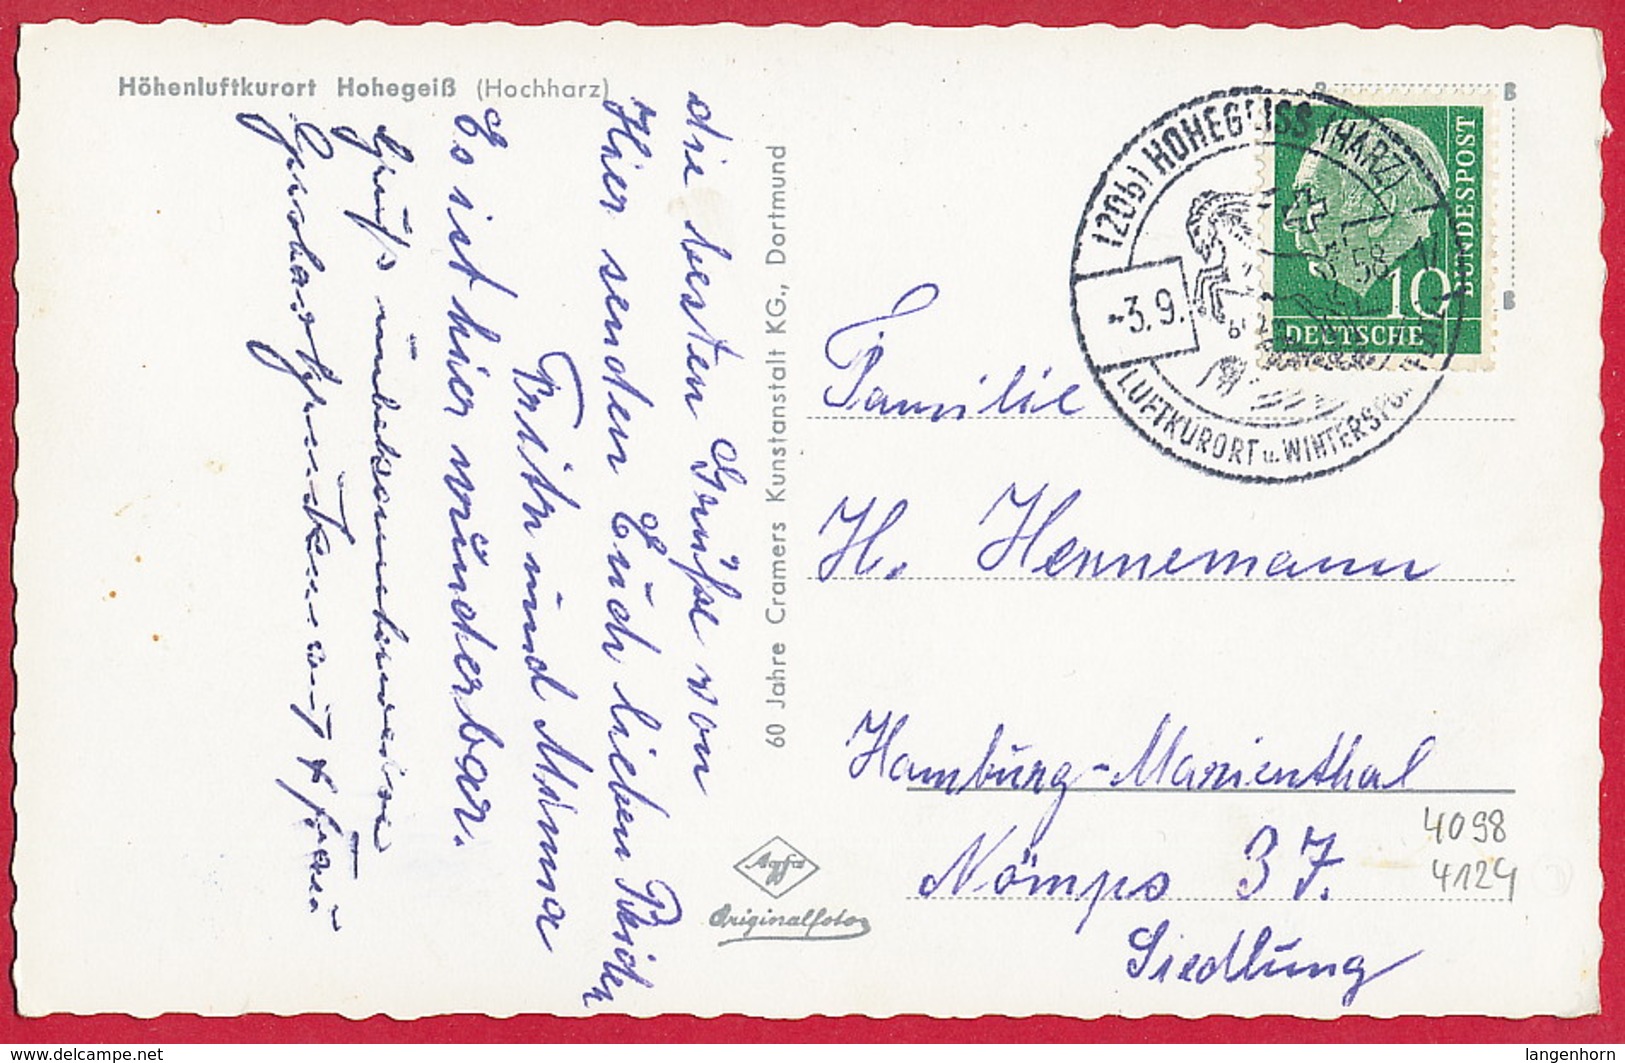 Höhenluftkurort Hohegeiß (Hochharz)
die besten Grüße von
Hier senden Euch lieben
und Mimma
Es ist hier wunderbar.
Gruß unbekannterweise
60 Jahre Cramers Kunstanstalt KG., Dortmund
(20b) HOHEGEISS (HARZ)
-3.9.
58
LUFTKURORT u. WINTERSPORT
DEUTSCHE
BUNDESPOST
10
B
B
B
Familie
H. Hennemann
Hamburg-Marienthal
Nömps 37.
Siedlung
4098
4124
Agfa
Originalfoto
www.delcampe.net
langenhorn